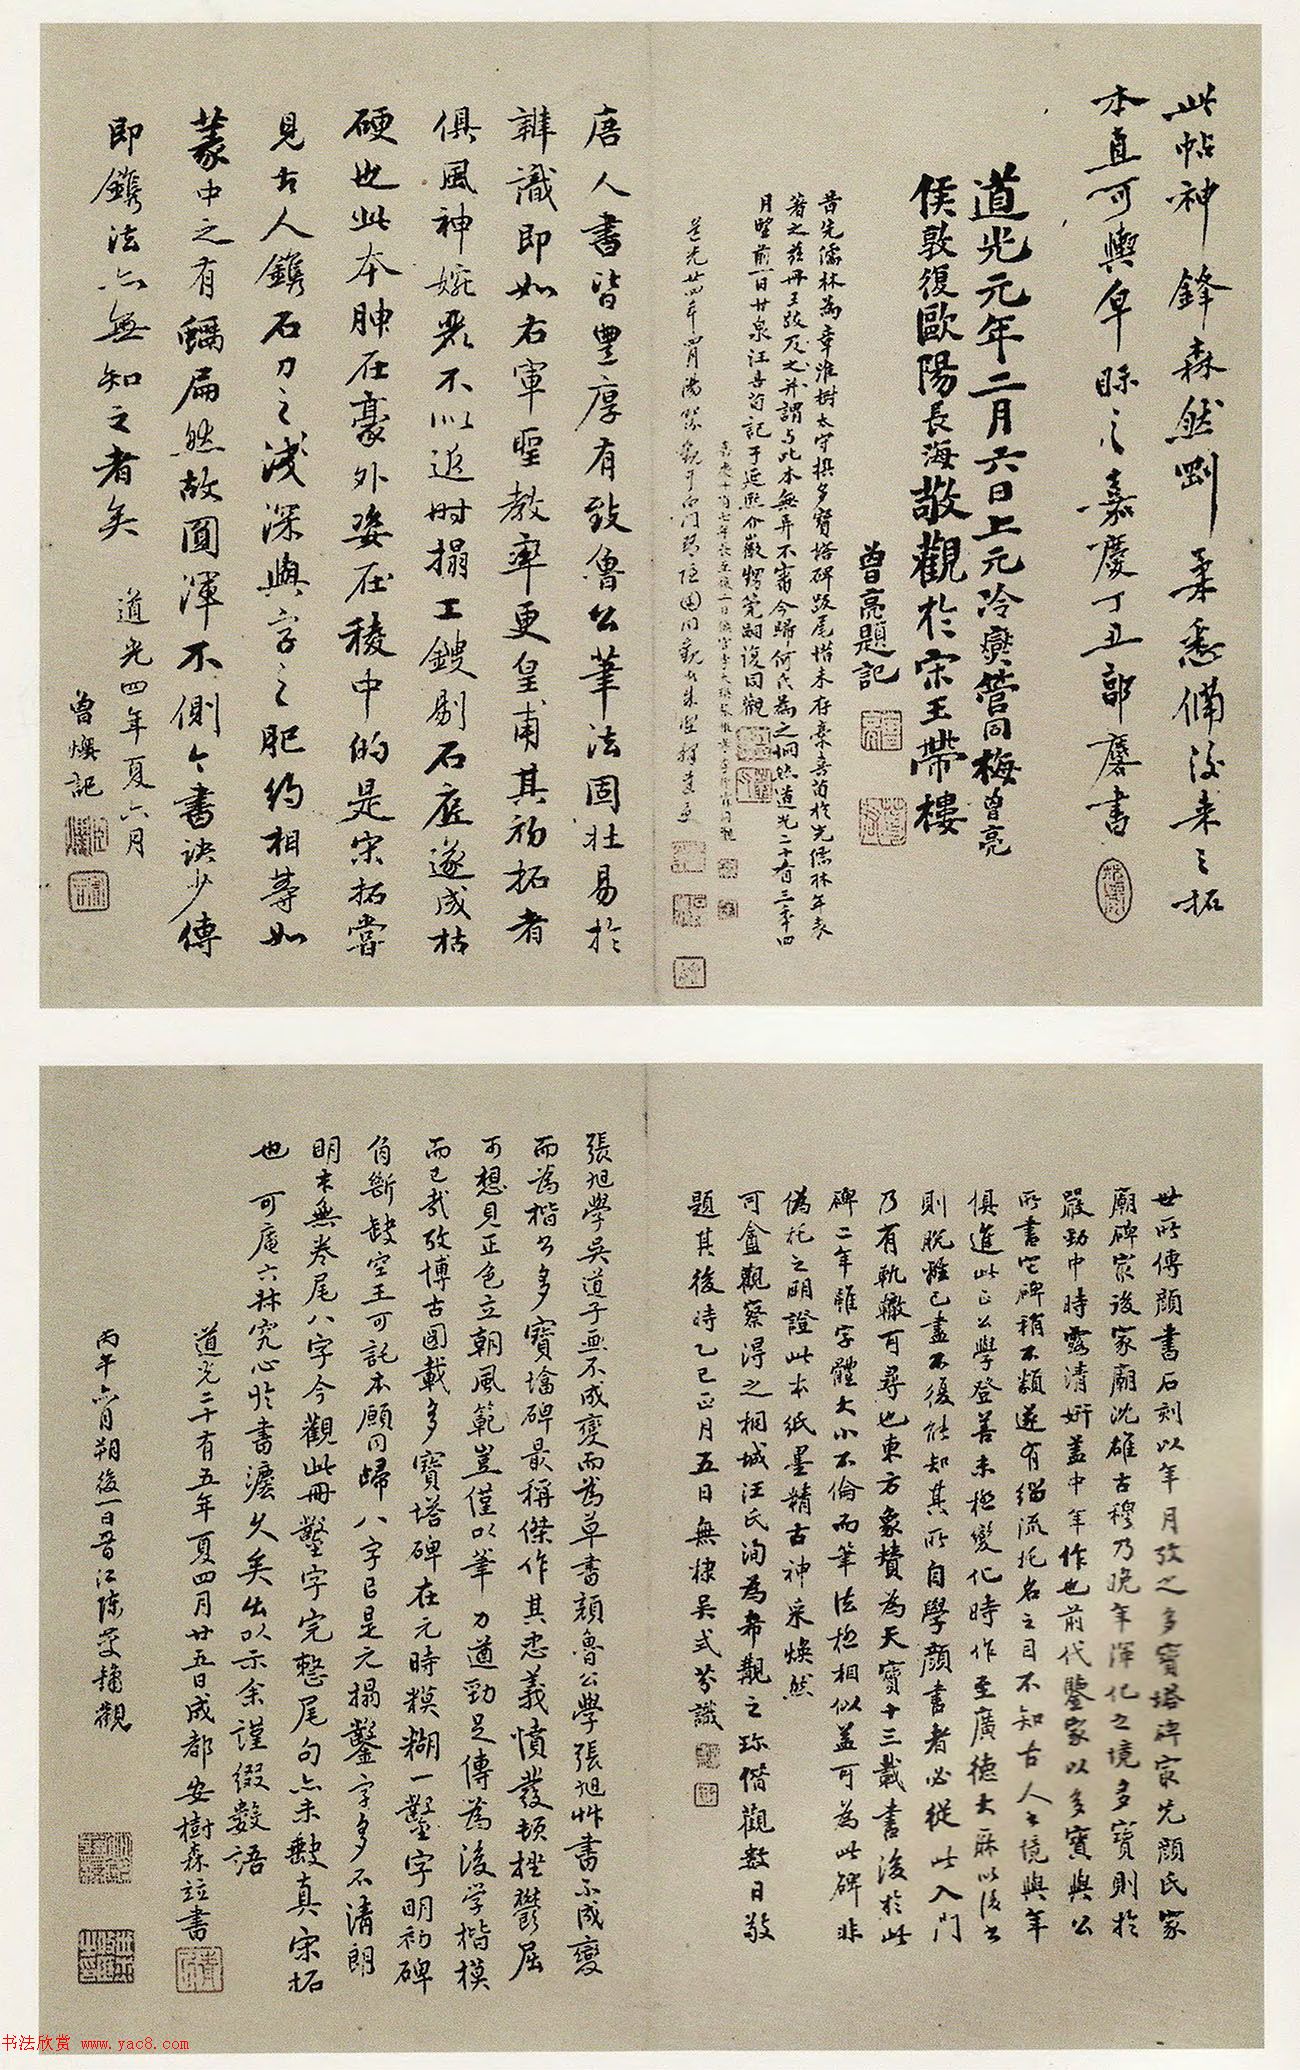 此帖神鋒森然剛柔悉備後来之拓
本直可輿皁眎之嘉慶丁丑郭麐書
道光元年二月六日上元冷爕管同梅曾亮
侯敦復歐陽長海敬觀於宋王帶樓
曾亮題記
昔先儒林為章淮樹太守撰多寶塔碑跋尾惜未存稾喜荀於先儒林年表
著之茲冊王跋及之并謂与此本無弄不甯今歸何氏為之惘然道光二十有三年四
月望前一日甘泉汪喜荀記于延熙介嚴甥筦嗣復同觀
唐人書皆豐厚有致魯公筆法固壯易於
辨識即如右軍聖教率更皇甫其初拓者
俱風神婉麗不似近時搨工鎪剔石底遂成枯
硬也此本腴在豪外姿在稜中的是宋拓嘗
見古人鐫石刀之淺深與字之肥約相等如
篆中之有蠣扁然故圓渾不側今書訣少傳
即鐫法亦無知之者矣
道光四年夏六月
曾燠記
世所傳顏書石刻以年月攷之多寶塔碑宲先顏氏家
廟碑宲後家廟沈雄古穆乃晚年渾化之境多寶則於
嚴勁中時露清妍蓋中年作也前代鑒家以多寶與公
所書它碑稍不類遂有緇流托名之目不知古人之境與年
俱進此正公學登善未極變化時作至廣德大厤以後書
則脫離已盡不復能知其所自學顏書者必從此入門
乃有軌轍可尋也東方象贊為天寶十三載書後於此
碑二年雖字體大小不倫而筆法極相似益可為此碑非
偽托之明證此本紙墨精古神采煥然
可盦觀察得之桐城汪氏洵為希覯之珎借觀數日敬
題其後時乙巳正月五日無棣吳式芬識
張旭學吳道子画不成變而為草書顏魯公學張旭艸書不成變
而為楷公多寶塔碑最稱傑作其忠義憤發頓挫鬱屈
可想見正色立朝風範豈僅以筆力遒勁足傳為後学楷模
而已哉攷博古圖載多寶塔碑在元時糢糊一鑿字明初碑
角斷缺空王可託本願同歸八字已是元搨鑿字多不清朗
明末無卷尾八字今觀此冊鑿字完整尾句亦未缺真宋拓
也可庵六林究心於書瀍久矣出以示余謹綴數語
道光二十有五年夏四月廿五日成都安樹森竝書
丙午六月朔後一日晉江陳慶鏞觀
书法欣赏 www.yac8.com